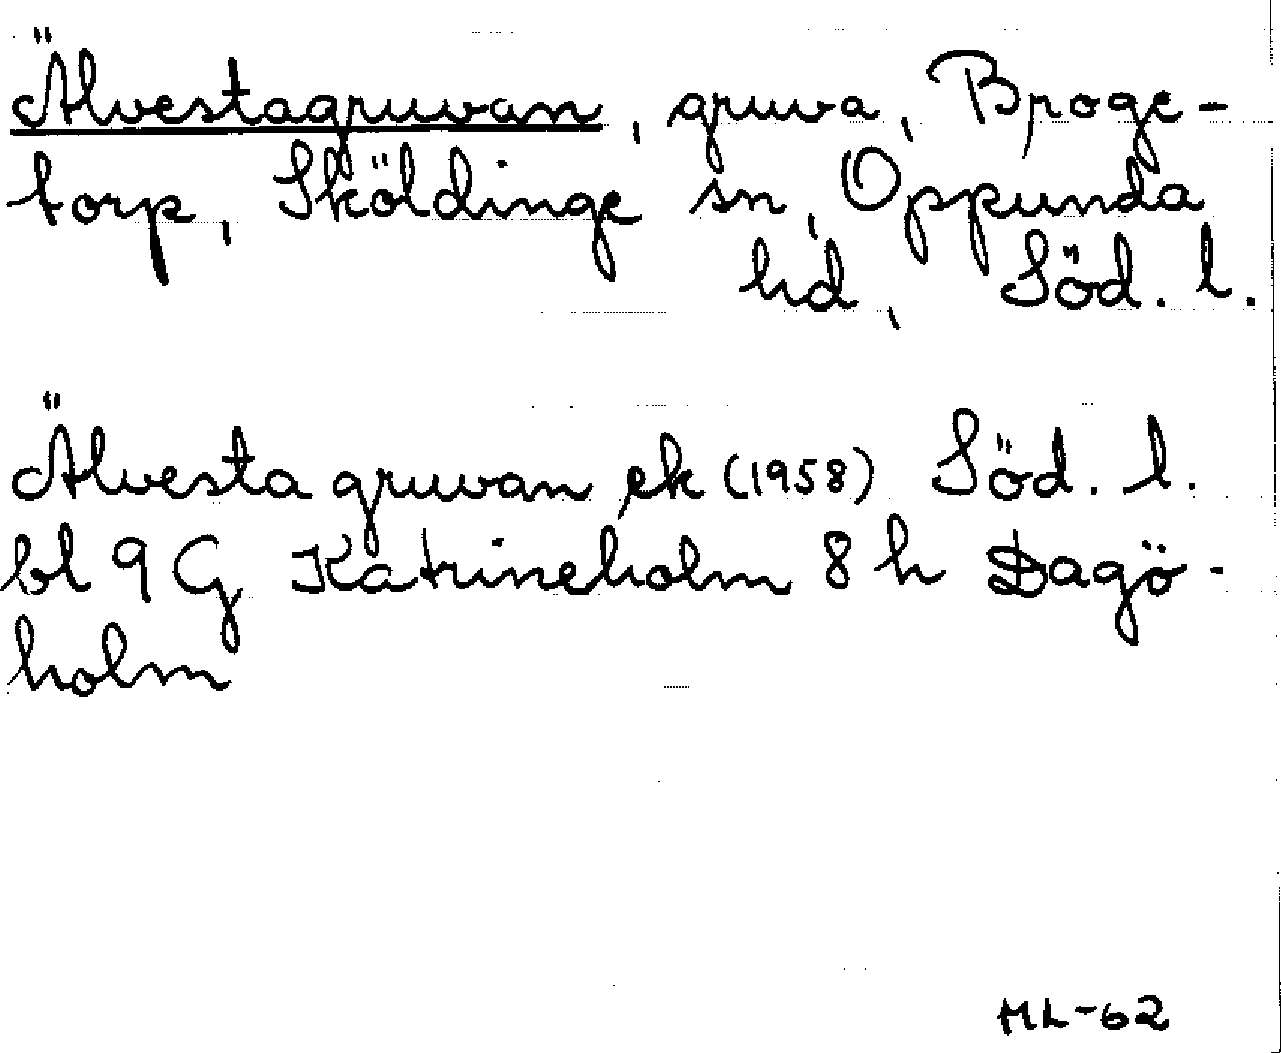 Älvestagruvan, gruva, Broge-
torp, Sköldinge sn, Oppunda
hd, Söd. l.
Älvestagruvan ek (1958) Söd. l.
bl 9 G Katrineholm 8 h Dagö-
holm
ML-62